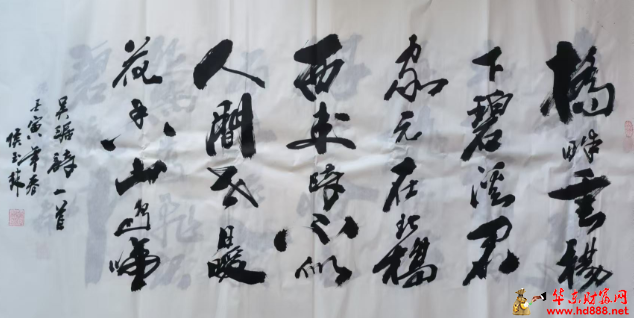 橋畔垂楊
下碧溪君
家元在北橋
西来時不似
人間世日暖
花香山鳥啼
吴琚詩一首
壬寅年春
侯玉
华东财富网
www.hd888.net